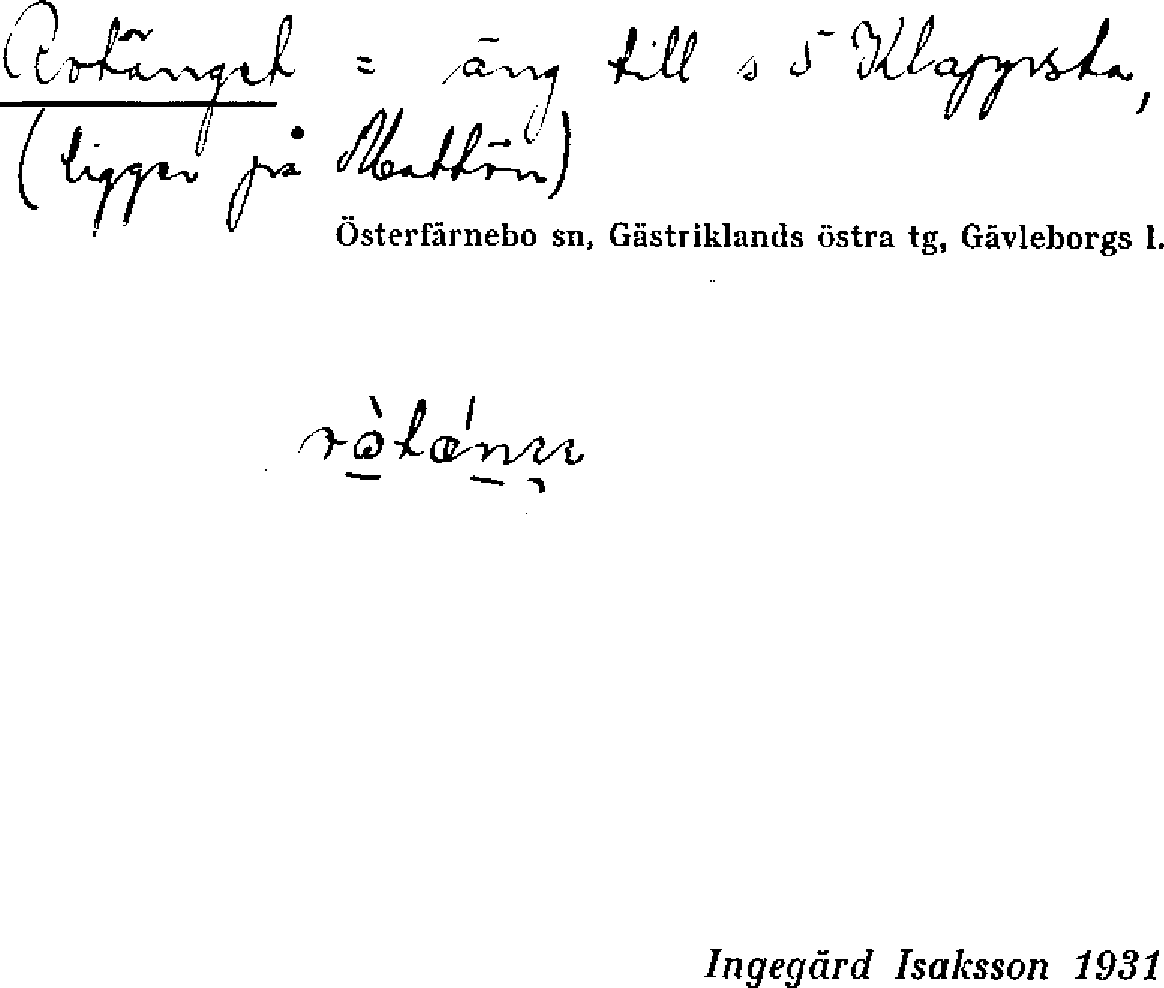 Rotänget = äng till s 5 Klappsta,
(ligger på Mattön)
Österfärnebo sn, Gästriklands östra tg, Gävleborgs l.
Ingegärd Isaksson 1931